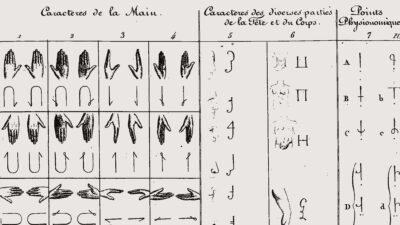 Caractères de la Main.
Caractères des diverses parties
de la Tête et du Corps.
Points
Physionomique
1 2 3 4 5 6 7
A
B b
C c
D d